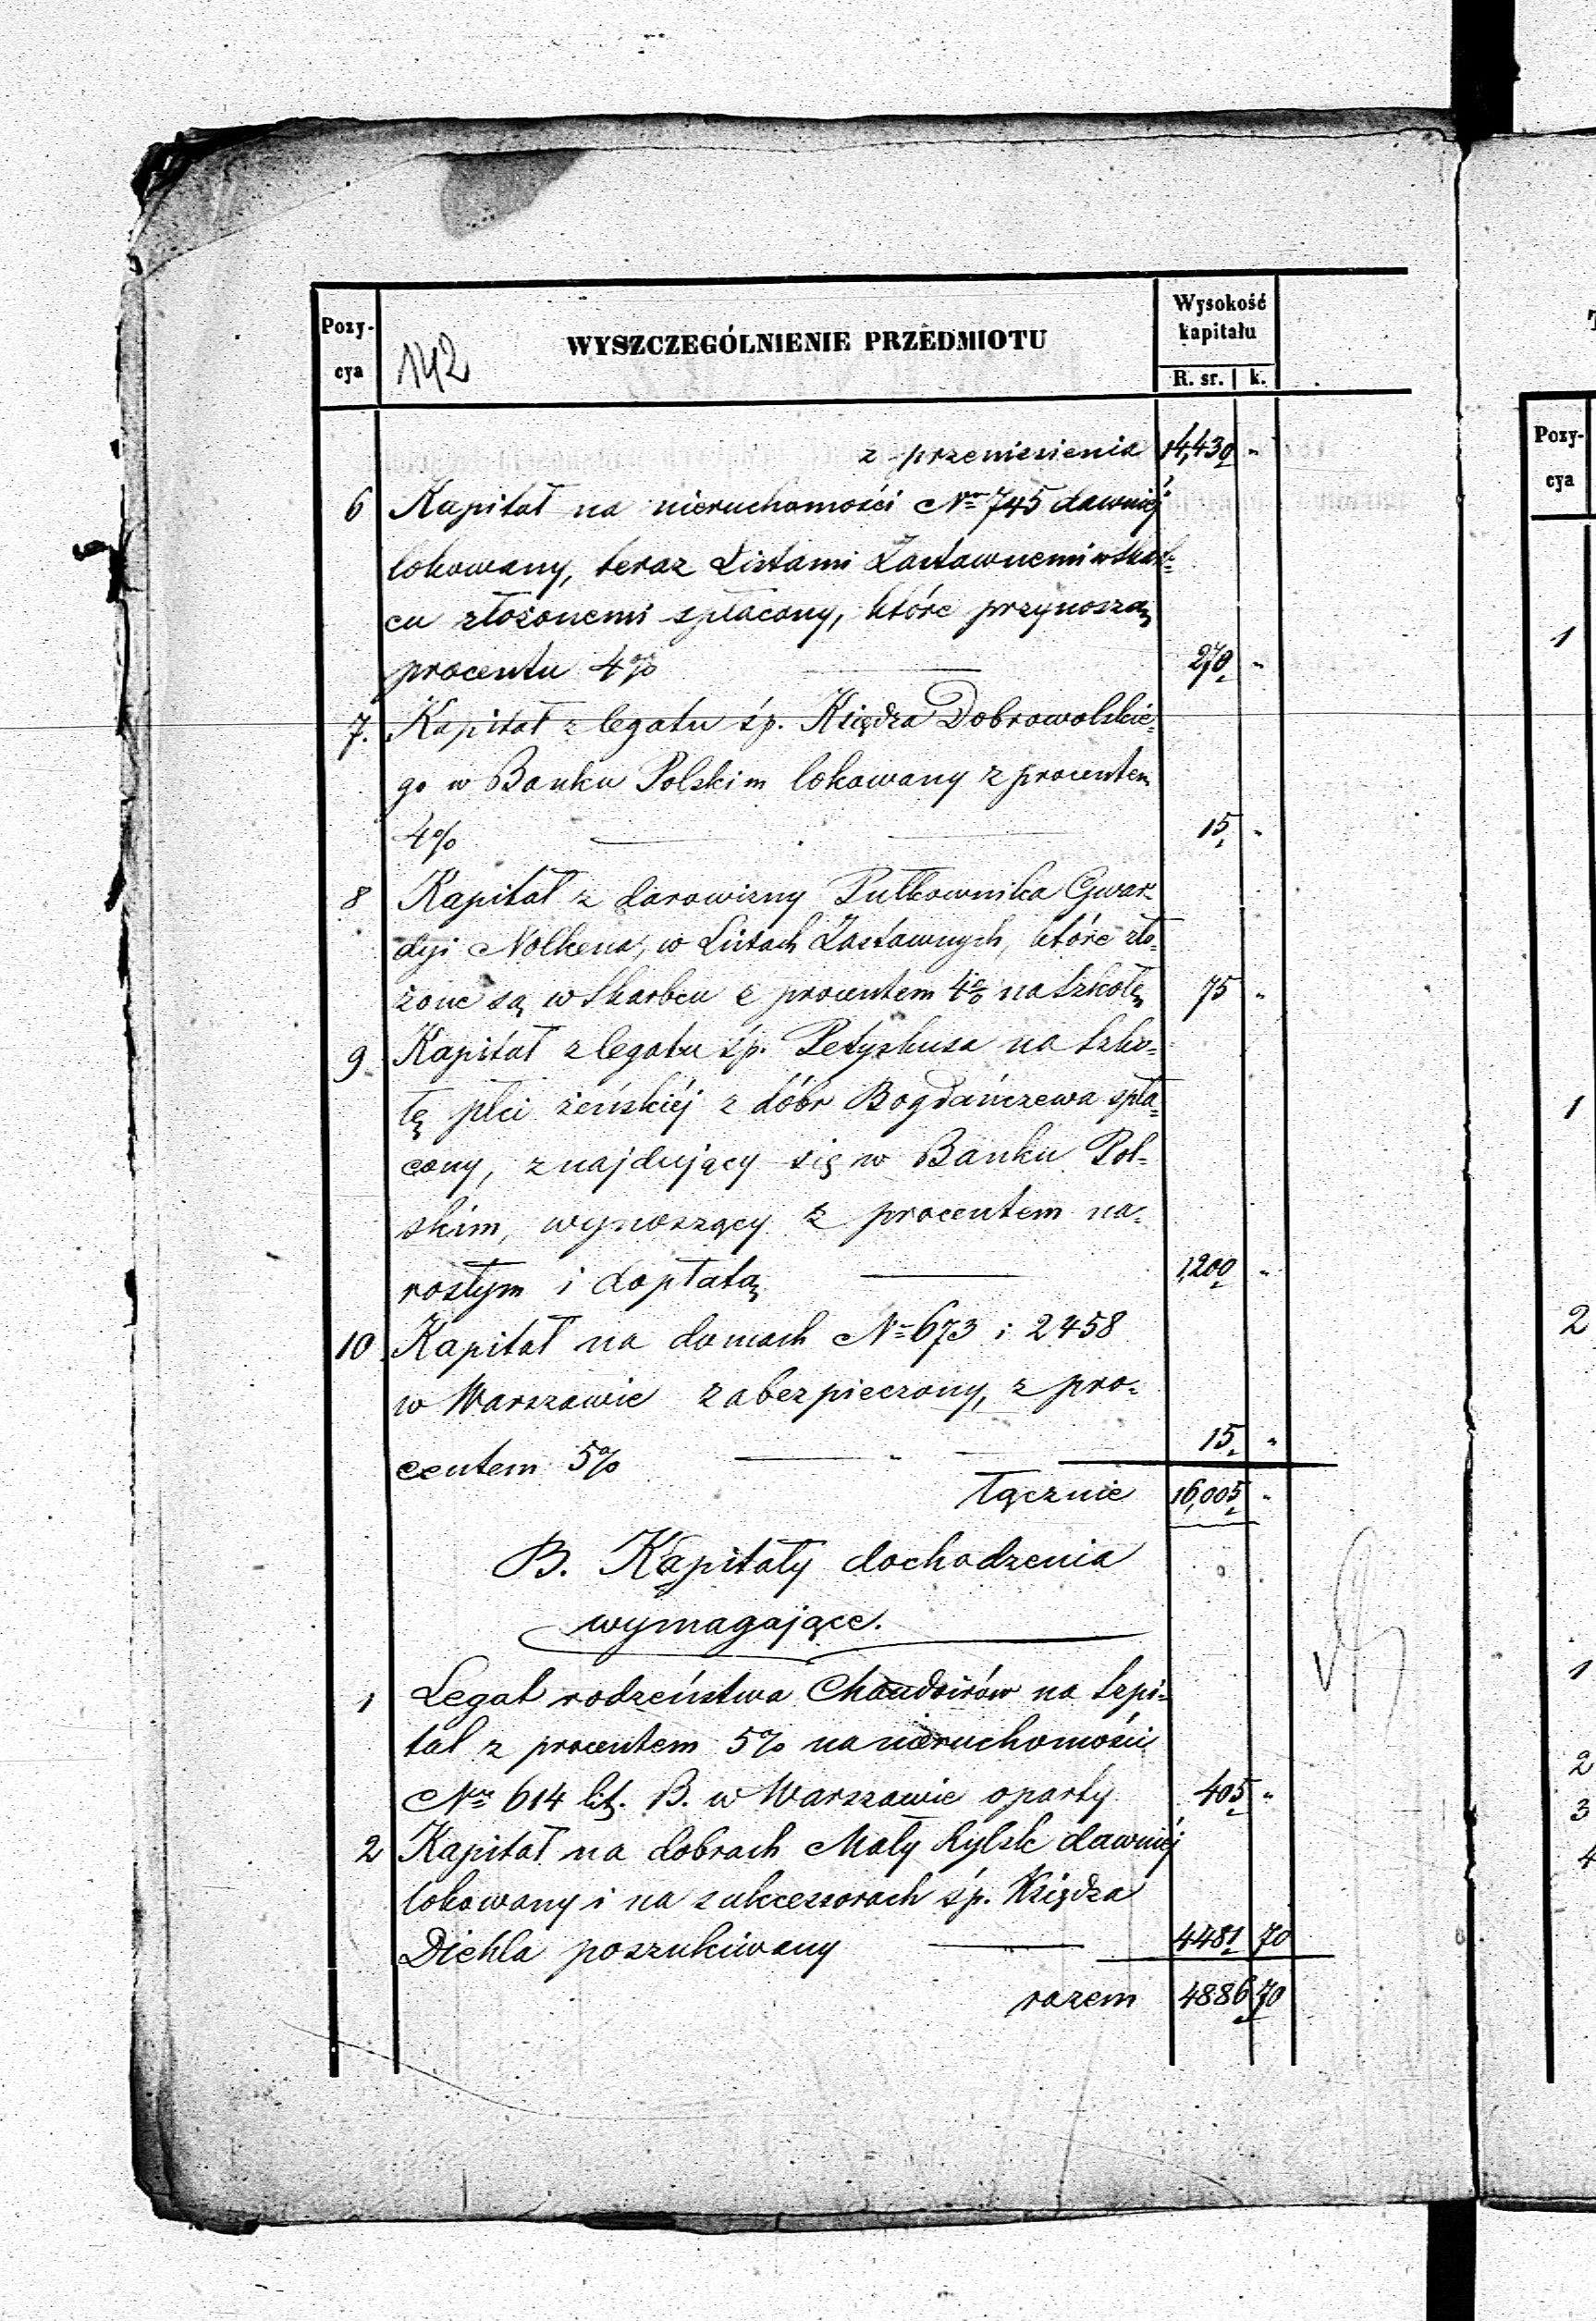 Pozy-
cya
142
WYSZCZEGÓLNIENIE PRZEDMIOTU
Wysokość
kapitału
R. sr. k.
z przeniesienia 14,430 "
6 Kapitał na nieruchomości Nro 745 dawniéj
lokowany, teraz Listami Zastawnemi w Skarb-
cu złożonemi spłacony, które przynoszą
procentu 4% 270 "
7. Kapitał z legatu śp. Księdza Dobrowolskie-
go w Banku Polskim lokowany z procentem
4% 15 "
8 Kapitał z darowizny Pułkownika Gwar-
dyi Nolkena, w Listach Zastawnych, które zło-
żone są w Skarbcu z procentem 4% na Szkołę 75 "
9 Kapitał z legatu śp. Petyskusa na Szko-
łę płci żeńskiéj z dóbr Bogdańczewa spła-
cony, znajdujący się w Banku Pol-
skim, wynoszący z procentem na-
rosłym i dopłatą 1,200 "
10 Kapitał na domach No 673 i 2458
w Warszawie zabezpieczony, z pro-
centem 5% 15 "
łącznie 16,005 "
B. Kapitały dochodzenia
wymagające.
1 Legat rodzeństwa Chaudoirów na Szpi-
tal z procentem 5% na nieruchomości
Nro 614 lit. B. w Warszawie oparty 405 "
2 Kapitał na dobrach Mały Rylsk dawniéj
lokowany i na sukcessorach śp. Księdza
Diehla poszukiwany 4481 70
razem 4886 70
Pozy-
cya
1
1
2
1
2
3
4